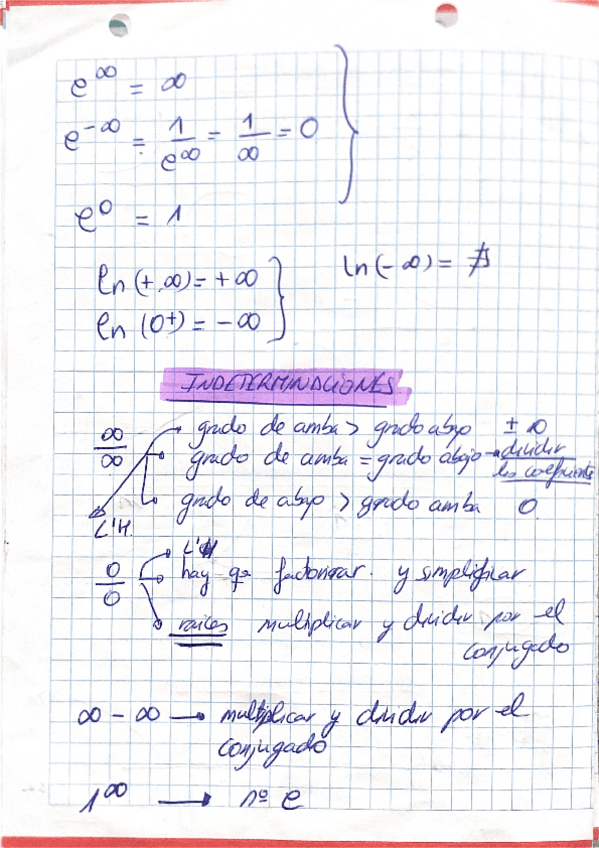 e^∞ = ∞
e^-∞ = 1/e^∞ = 1/∞ = 0
e^0 = 1
ln (+∞) = +∞
ln (0+) = -∞
ln (-∞) = ∄
INDETERMINACIONES
∞/∞ grado de arriba > grado abajo ± ∞
grado de arriba = grado abajo → dividir los coeficientes
grado de abajo > grado arriba 0
L'H
0/0 L'H
hay q factorizar. y simplificar
raíces multiplicar y dividir por el
conjugado
∞ - ∞ → multiplicar y dividir por el
conjugado
1^∞ → nº e